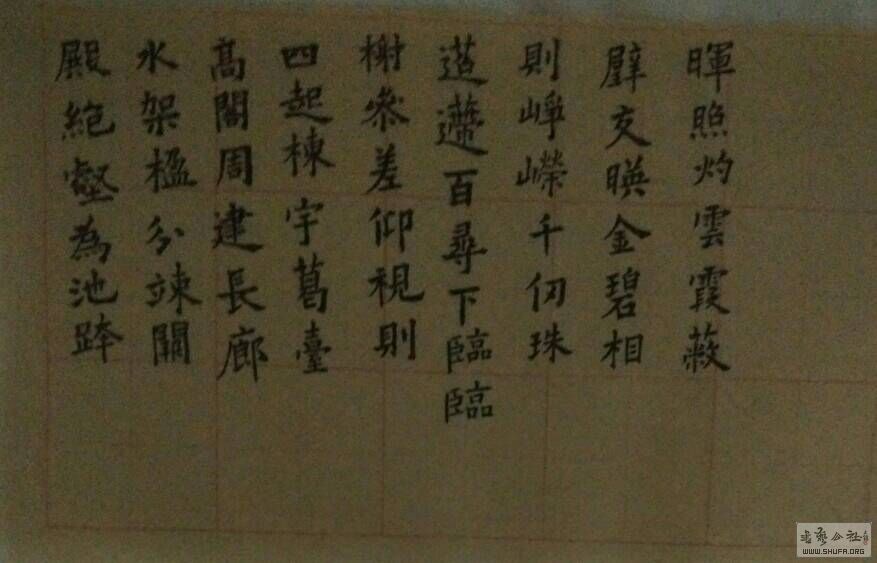 殿絶壑為池跨
水架楹分竦闕
高閣周建長廊
四起棟宇葛臺
榭參差仰視則
迢遰百尋下臨臨
則崢嶸千仞珠
璧交暎金碧相
暉照灼雲霞蔽
书艺公社
WWW.SHUFA.ORG